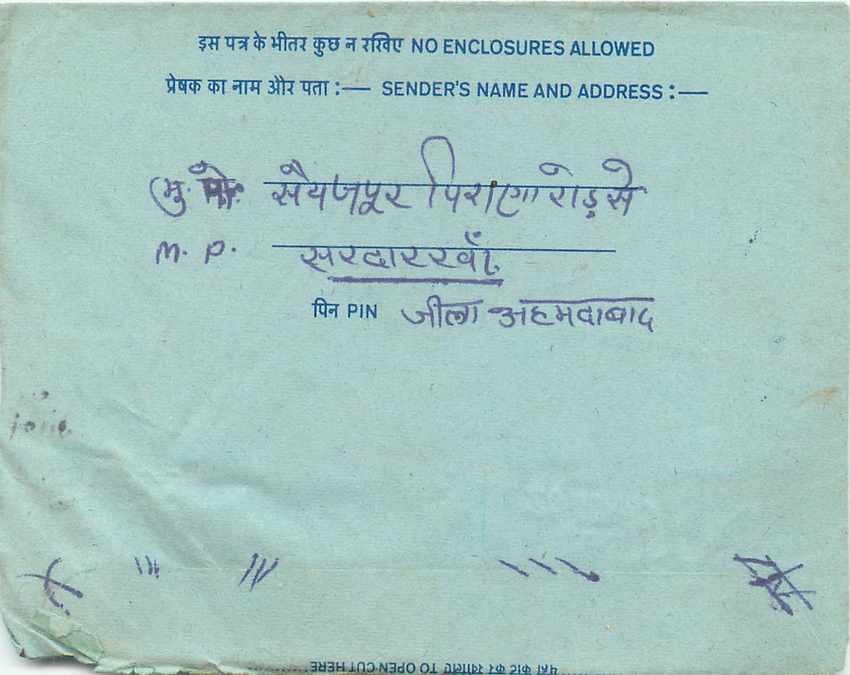 इस पत्र के भीतर कुछ न रखिए NO ENCLOSURES ALLOWED
प्रेषक का नाम और पता :— SENDER'S NAME AND ADDRESS :—
मु. पो. सैयजपूर पिराणा रोड़ से
M. P. सरदारखाँ.
पिन PIN जीला अहमदाबाद
TO OPEN CUT HERE